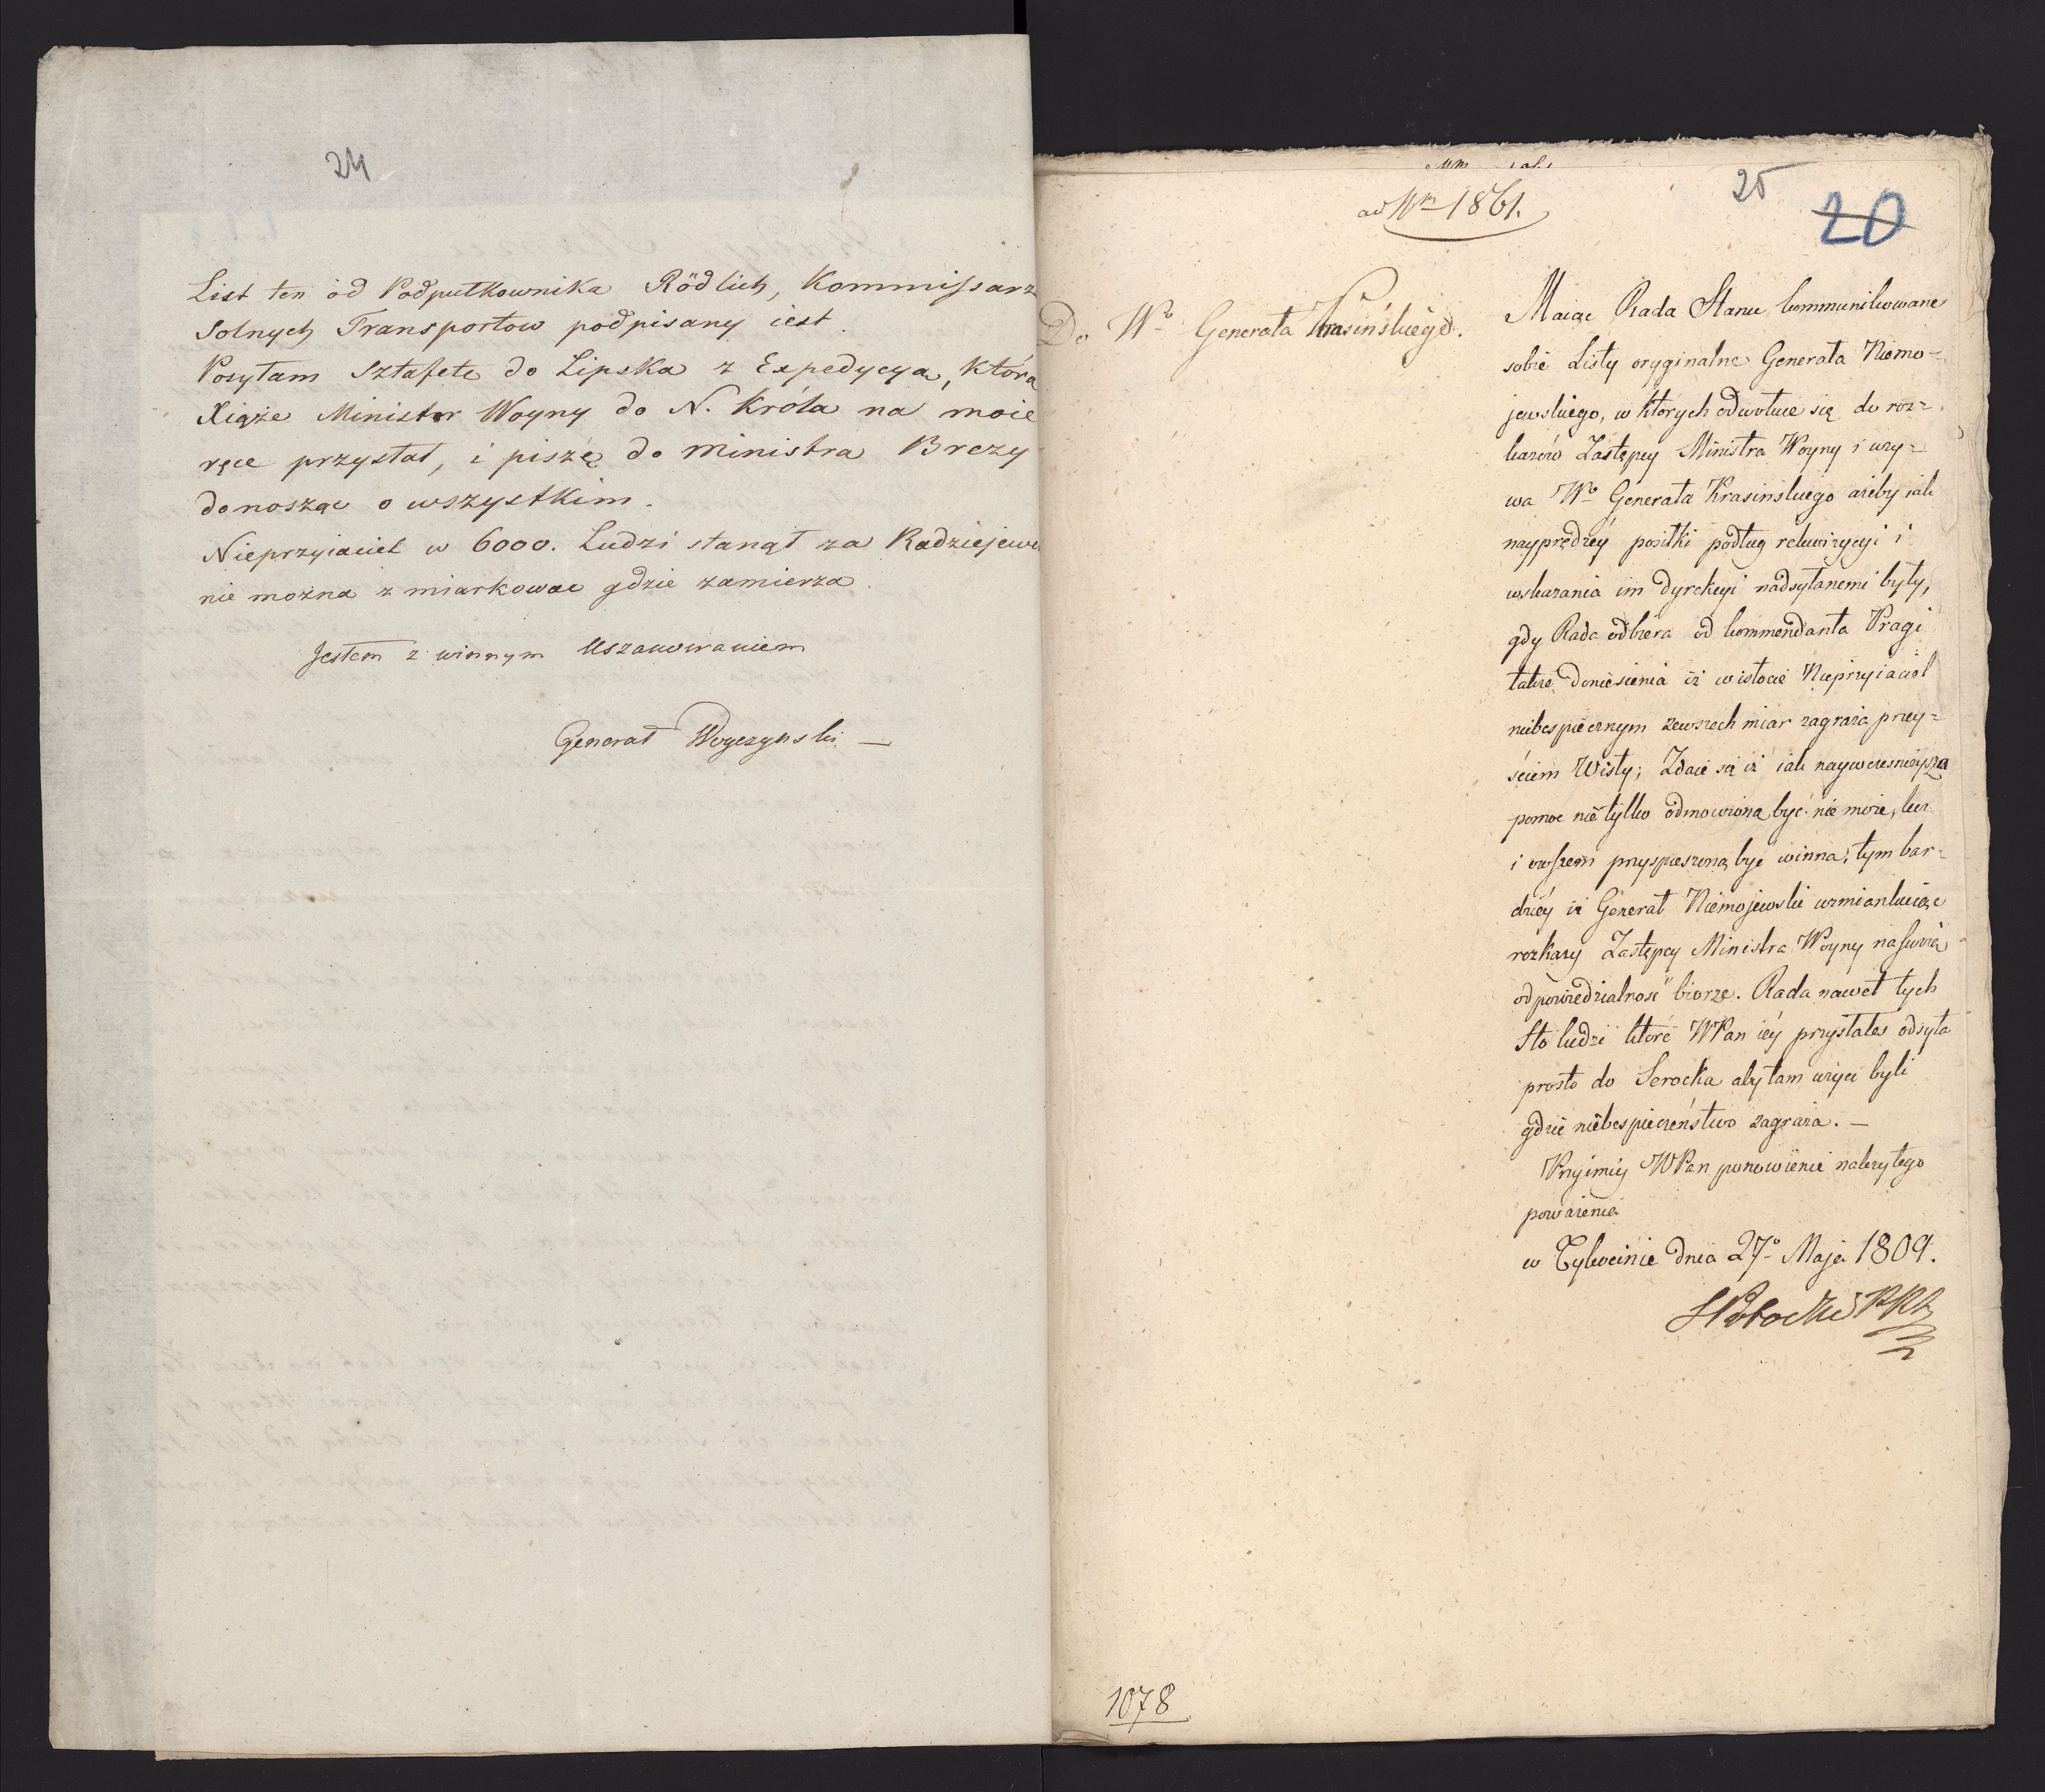 24
List ten od Podpułkownika Rödlich, Kommissarz
Solnych Transportow podpisany iest.
Posyłam Sztafetę do Lipska z Expedycyą, którą
Xiąże Minister Woyny do N. Króla na moie
ręce przysłał, i piszę do Ministra Brezy
donosząc o wszystkim.
Nieprzyiaciel w 6000. Ludzi stanął za Radziejewem
nie można zmiarkowac gdzie zamierza.
Jestem z winnym Uszanowaniem
Generał Woyczynski —
ad Nrm 1861.
25
20
Do Wo Generała Krasińskiego.
Maiąc Rada Stanu kommunikowane
sobie Listy oryginalne Generała Niemo-
jewskiego, w których odwołuie się do roz=
kazów Zastępcy Ministra Woyny i wzy=
wa Wo Generała Krasinskiego ażeby iak
nayprędzey posiłki podług rekwizycyi i
wskazania im dyrekcyi nadsyłanemi były,
gdy Rada odbiera od kommendanta Pragi
także doniesienia iż w istocie Nieprzyiaciel
niebespiecznym zewszech miar zagraża przey=
ściem Wisły; Zdaie się iż iak naywcześnieysza
pomoc nie tylko odmowiona być nie może, lecz
i owszem przyspieszoną być winna, tym bar=
dziey iż Generał Niemojewski wzmiankuiąc
rozkazy Zastępcy Ministra Woyny na swoią
odpowiedzialność bierze. Rada nawet tych
sto ludzi które WPan iey przysłałes odsyła
prosto do Serocka aby tam użyci byli
gdzie niebespieczeństwo zagraża. —
Przyimiy WPan ponowienie należytego
poważenia
w Tykocinie dnia 27o Maja 1809.
SPotocki PR
1078